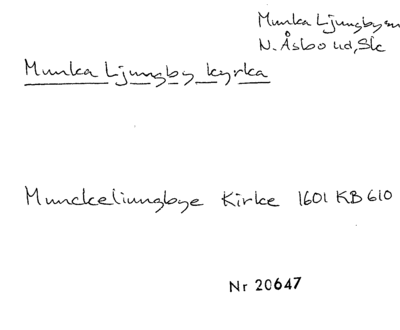 Munka Ljungby sn
N. Åsbo hd, Sk
Munka Ljungby kyrka
Munckeliungbye Kirke 1601 KB 610
Nr 20647